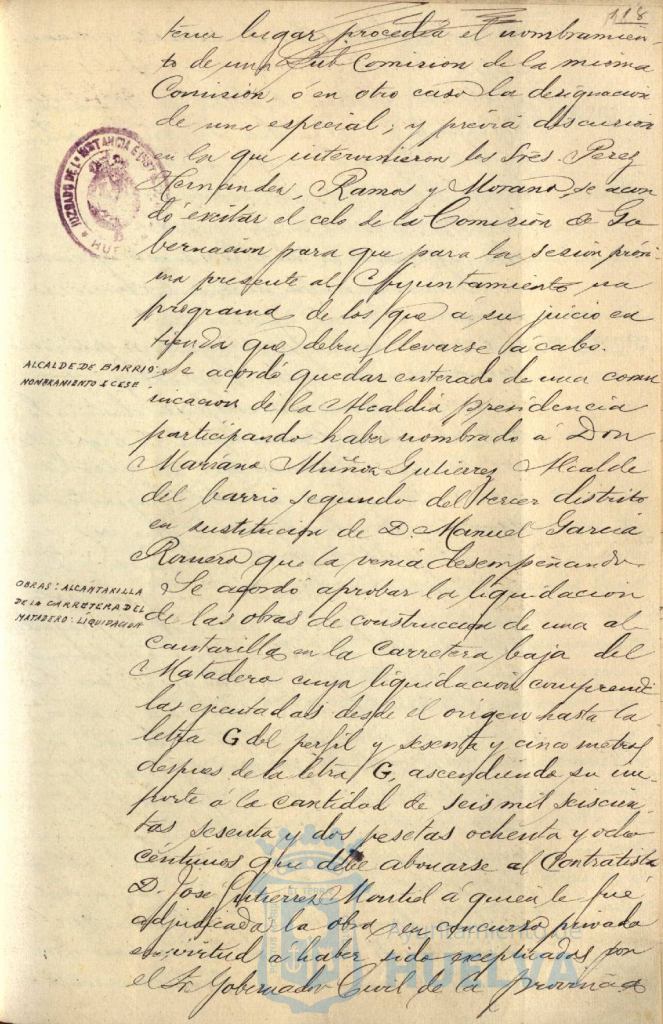 118
tener lugar procedia el nombramien-
to de una Sub Comision de la misma
Comisión, ó en otro caso la designacion
de una especial; y previa discusion
en la que intervinieron los Sres. Perez
Hernandez, Ramos y Morano, se acor
dó excitar el celo de la Comisión de Go
bernacion para que para la sesion próxi
ma presente al Ayuntamiento un
programa de los que á su juicio en
tienda que deben llevarse á cabo.
ALCALDE DE BARRIO:
NOMBRAMIENTO E CESE
Se acordó quedar enterado de una comu
nicacion de la Alcaldia presidencia
participando haber nombrado á Don
Mariano Muñoz Gutierrez Alcalde
del barrio segundo del tercer distrito
en sustitucion de D. Manuel Garcia
Romero que la venia desempeñando.
OBRAS: ALCANTARILLA
DE LA CARRETERA DEL
MATADERO: LIQUIDACION
Se acordó aprobar la liquidacion
de las obras de construccion de una al
cantarilla en la Carretera baja del
Matadero cuya liquidacion comprende
las ejecutadas desde el origen hasta la
letra G del perfil y sesenta y cinco metros
despues de la letra G, ascendiendo su im
porte á la cantidad de seis mil seiscien
tas sesenta y dos pesetas ochenta y ocho
centimos que debe abonarse al Contratista
D. Jose Gutierrez Montiel á quien le fué
adjudicada la obra en concurso privado
en virtud á haber sido exceptuadas por
el Sr. Gobernador Civil de la provincia
JUZGADO DE 1ª INSTANCIA E
HUELVA